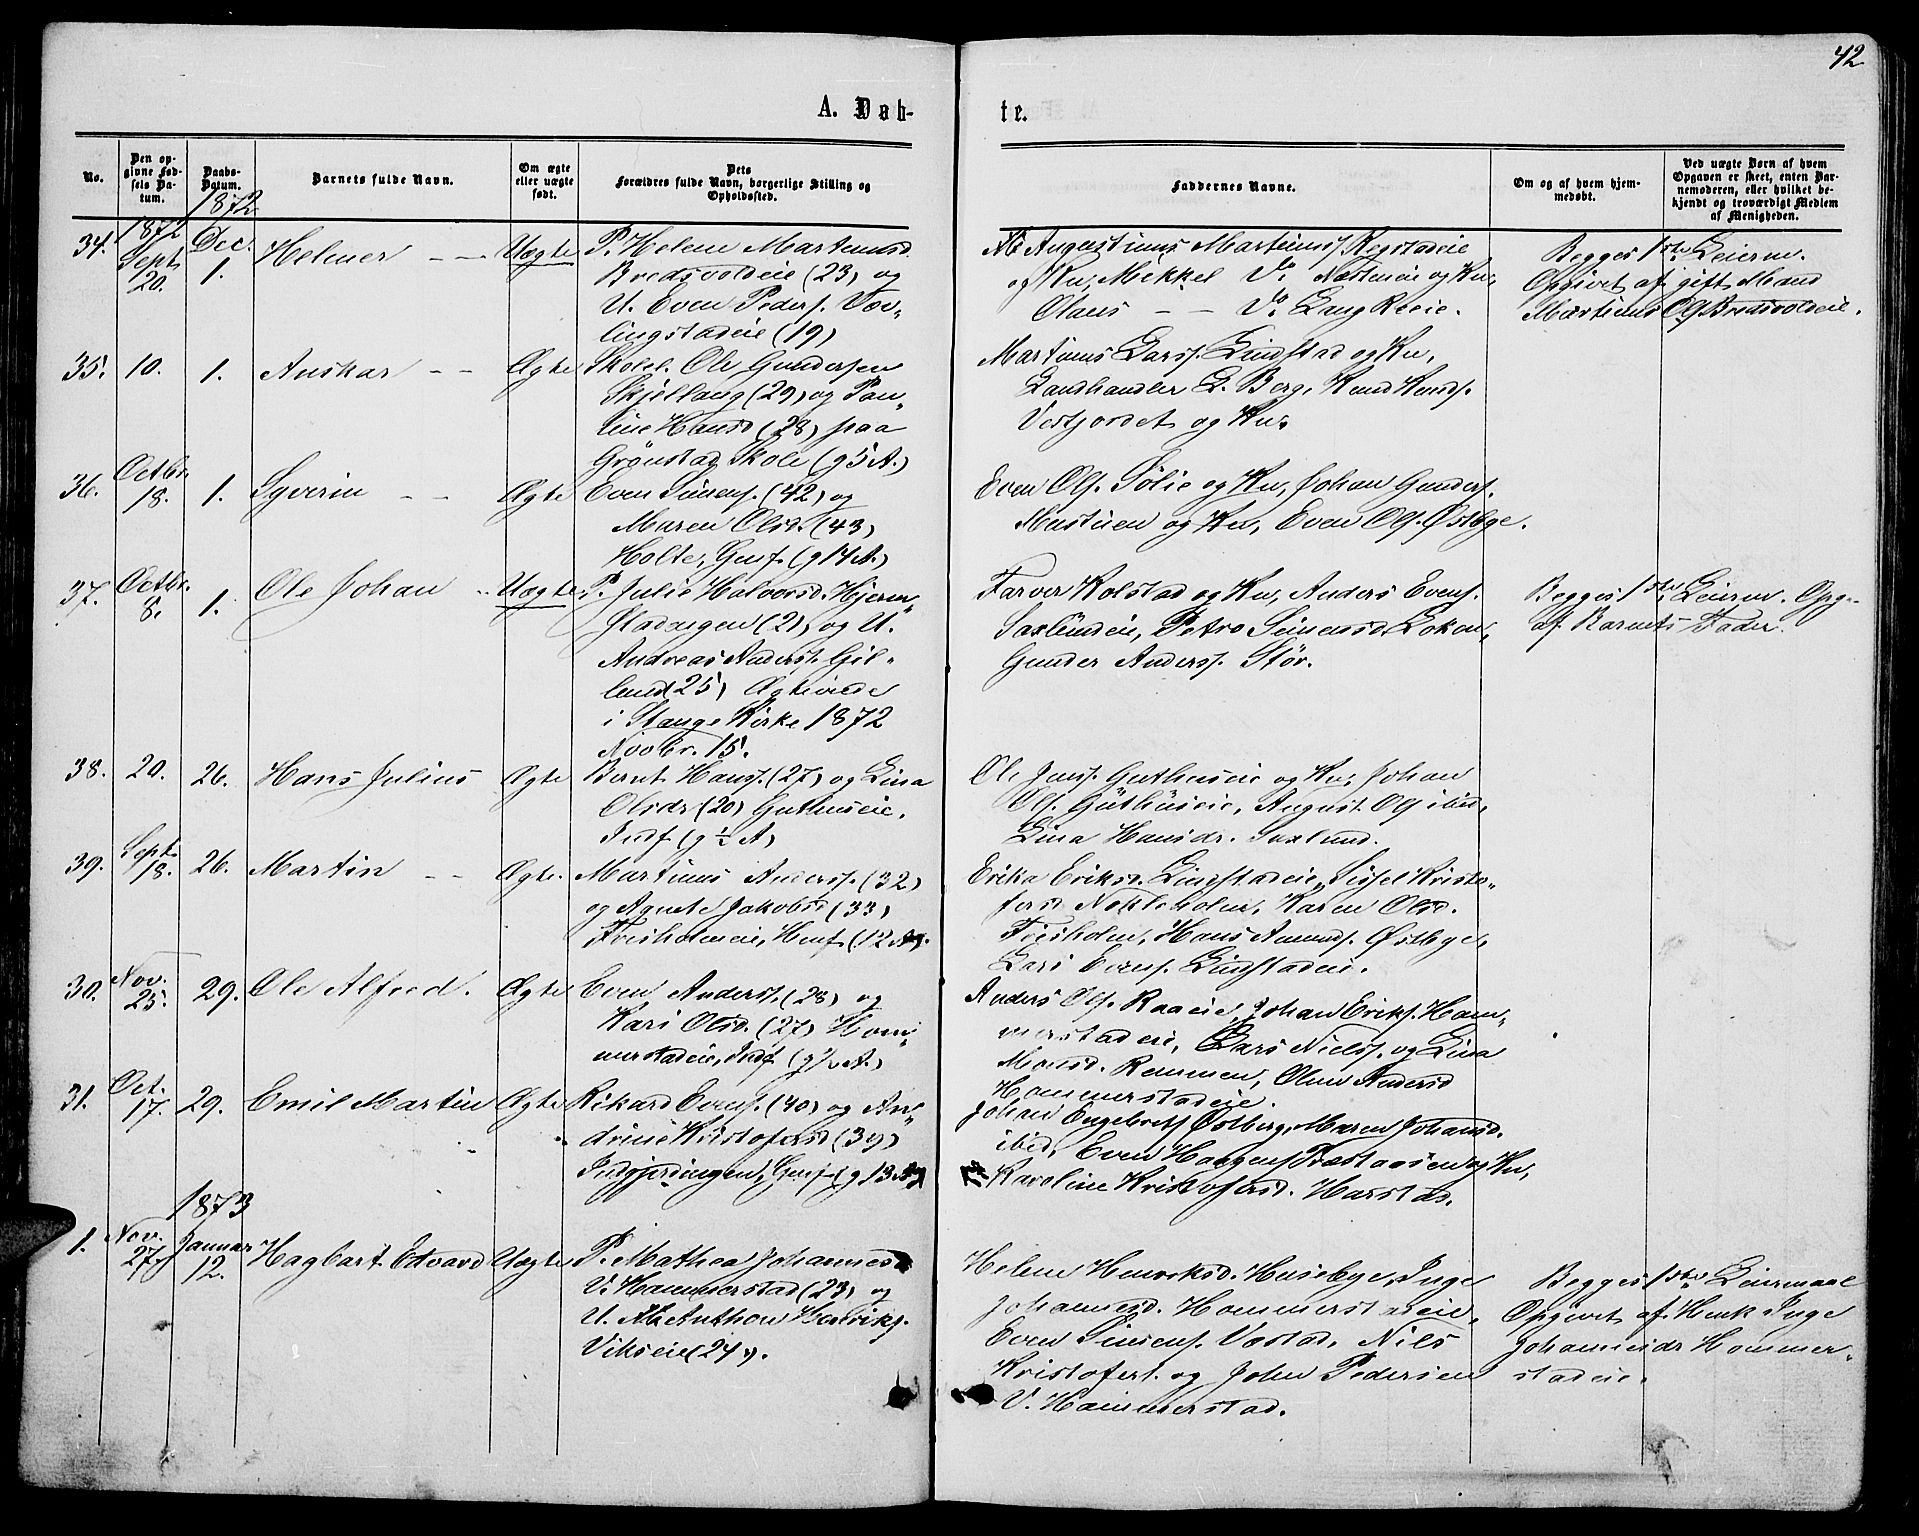 42
A. Døb-
te.
No.
Den op-
givne Fød-
sels Da-
tum.
Daabs-
Datum.
Barnets fulde Navn.
Om ægte
eller uægte
født.
Dets
Forældres fulde Navn, borgerlige Stilling og
Opholdssted.
Faddernes Navne.
Om og af hvem hjem-
medøbt.
Ved uægte Børn af hvem
Opgaven er skeet, enten Bar-
nemoderen, eller hvilket be-
kjendt og troværdigt Medlem
af Menigheden.
1872 1872
34. Sept. 20. Dec. 1. Helmer Uægte
P. Helene Martinusd.
Bredsvoldeie (23) og
U. Even Peders.
lingstadeie (19)
Augustinus Martinuss. Regstadeie
og Ku, Mikkel Do Næstneie og Ku,
Olaus Do
Begges 1ste Leierm.
Opgivet af gift Mand
Martinus Ols. Bredsvoldeie.
35. 10. 1. Anskar Ægte
Skolel. Ole Gundersen
Skjellang (29) og Pau-
line Hansd. (28) paa
Grönstad Skole (g 5 A.)
Martinus Larss. Lindstad og Ku,
Landhandler L. Berg, Knud Knuds.
Vestjordet og Ku.
36. Octbr. 18. 1. Syverin Ægte
Even Simens. (42) og
Maren Olsd. (43)
Holte, Genf. (g 14 A.)
Even Ols. Sölie og Ku, Johan Gunders.
Mustuen og Ku, Even Ols. Østbye.
37. Octbr. 8. 1. Ole Johan Uægte
P. Julie Halvorsd. Hjerm-
stadengen (21) og U.
Andreas Anderss. Gil-
lund (25) Ægteviede
i Stange Kirke 1872
Novbr. 15.
Farver Kolstad og Ku, Anders Evens.
Saxlundeie, Petra Simensd. Løken,
Gunder Anderss. Stör.
Begges 1ste Leierm. Opg.
af Barnets Fader.
38. 20. 26. Hans Julius Ægte
Bernt Hanss. (27) og Lina
Olsdr (20) Guthuseie,
Indf. (g ½ A)
Ole Jens. Guthuseie og Ku, Johan
Ols. Guthuseie, August Ols. ibid,
Lina Hansdr. Saxlund.
39. Sept. 18. 26. Martin Ægte.
Martinus Anderss. (32)
og Agnete Jakobsd. (33)
Frisholmeie, Genf. (12 A).
Erika Eriksd. Lindstadeie, Sissel Kristo-
fersd. Nökleholm, Karen Olsd.
Frisholm, Hans Amunds. Østbye,
Lars Evens. Lindstadeie.
30. Nov. 25. 29. Ole Alfred. Ægte
Even Anderss. (28) og
Kari Olsd. (27) Ham-
merstadeie, Indf. (g ½ A.)
Anders Ols. Raaeie, Johan Eriks. Ham-
merstadeie, Lars Niels. og Lina
Monsd. Remmen, Oline Andersd.
Hammerstadeie.
31. Oct. 17. 29. Emil Martin Ægte
Rikard Evens. (40) og An-
drine Kristofersd. (39)
Indgjerdingen, Genf. (g. 13 A)
Johan Engebrets. Østberg, Maren Johansd.
ibid, Even Haagens. Præstaasen og Ku,
Karoline Kristofersd. Harstad.
1873
1. Nov. 27. Januar 12. Hagbart Edvard Uægte
P. Mathea Johannesd.
V. Hammerstad (23) og
U. Anthon Henriks.
Vikseie (24).
Helene Henriksd. Huusebye, Inge
Johannesd. Hammerstadeie,
Even Simens. Vestad, Nils
Kristofers. og John Pedersen
V. Hammerstad.
Begges 1ste Leiermaal
Opgivet af Inge
Johannesdr Hammer-
stadeie.